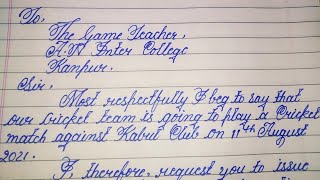 To,
The Game Teacher,
A.N Inter College
Kanpur.
Sir,
Most respectfully I beg to say that
our Cricket team is going to play a Cricket
match against Kabul Club on 11th August
2021.
I, therefore, request you to issue